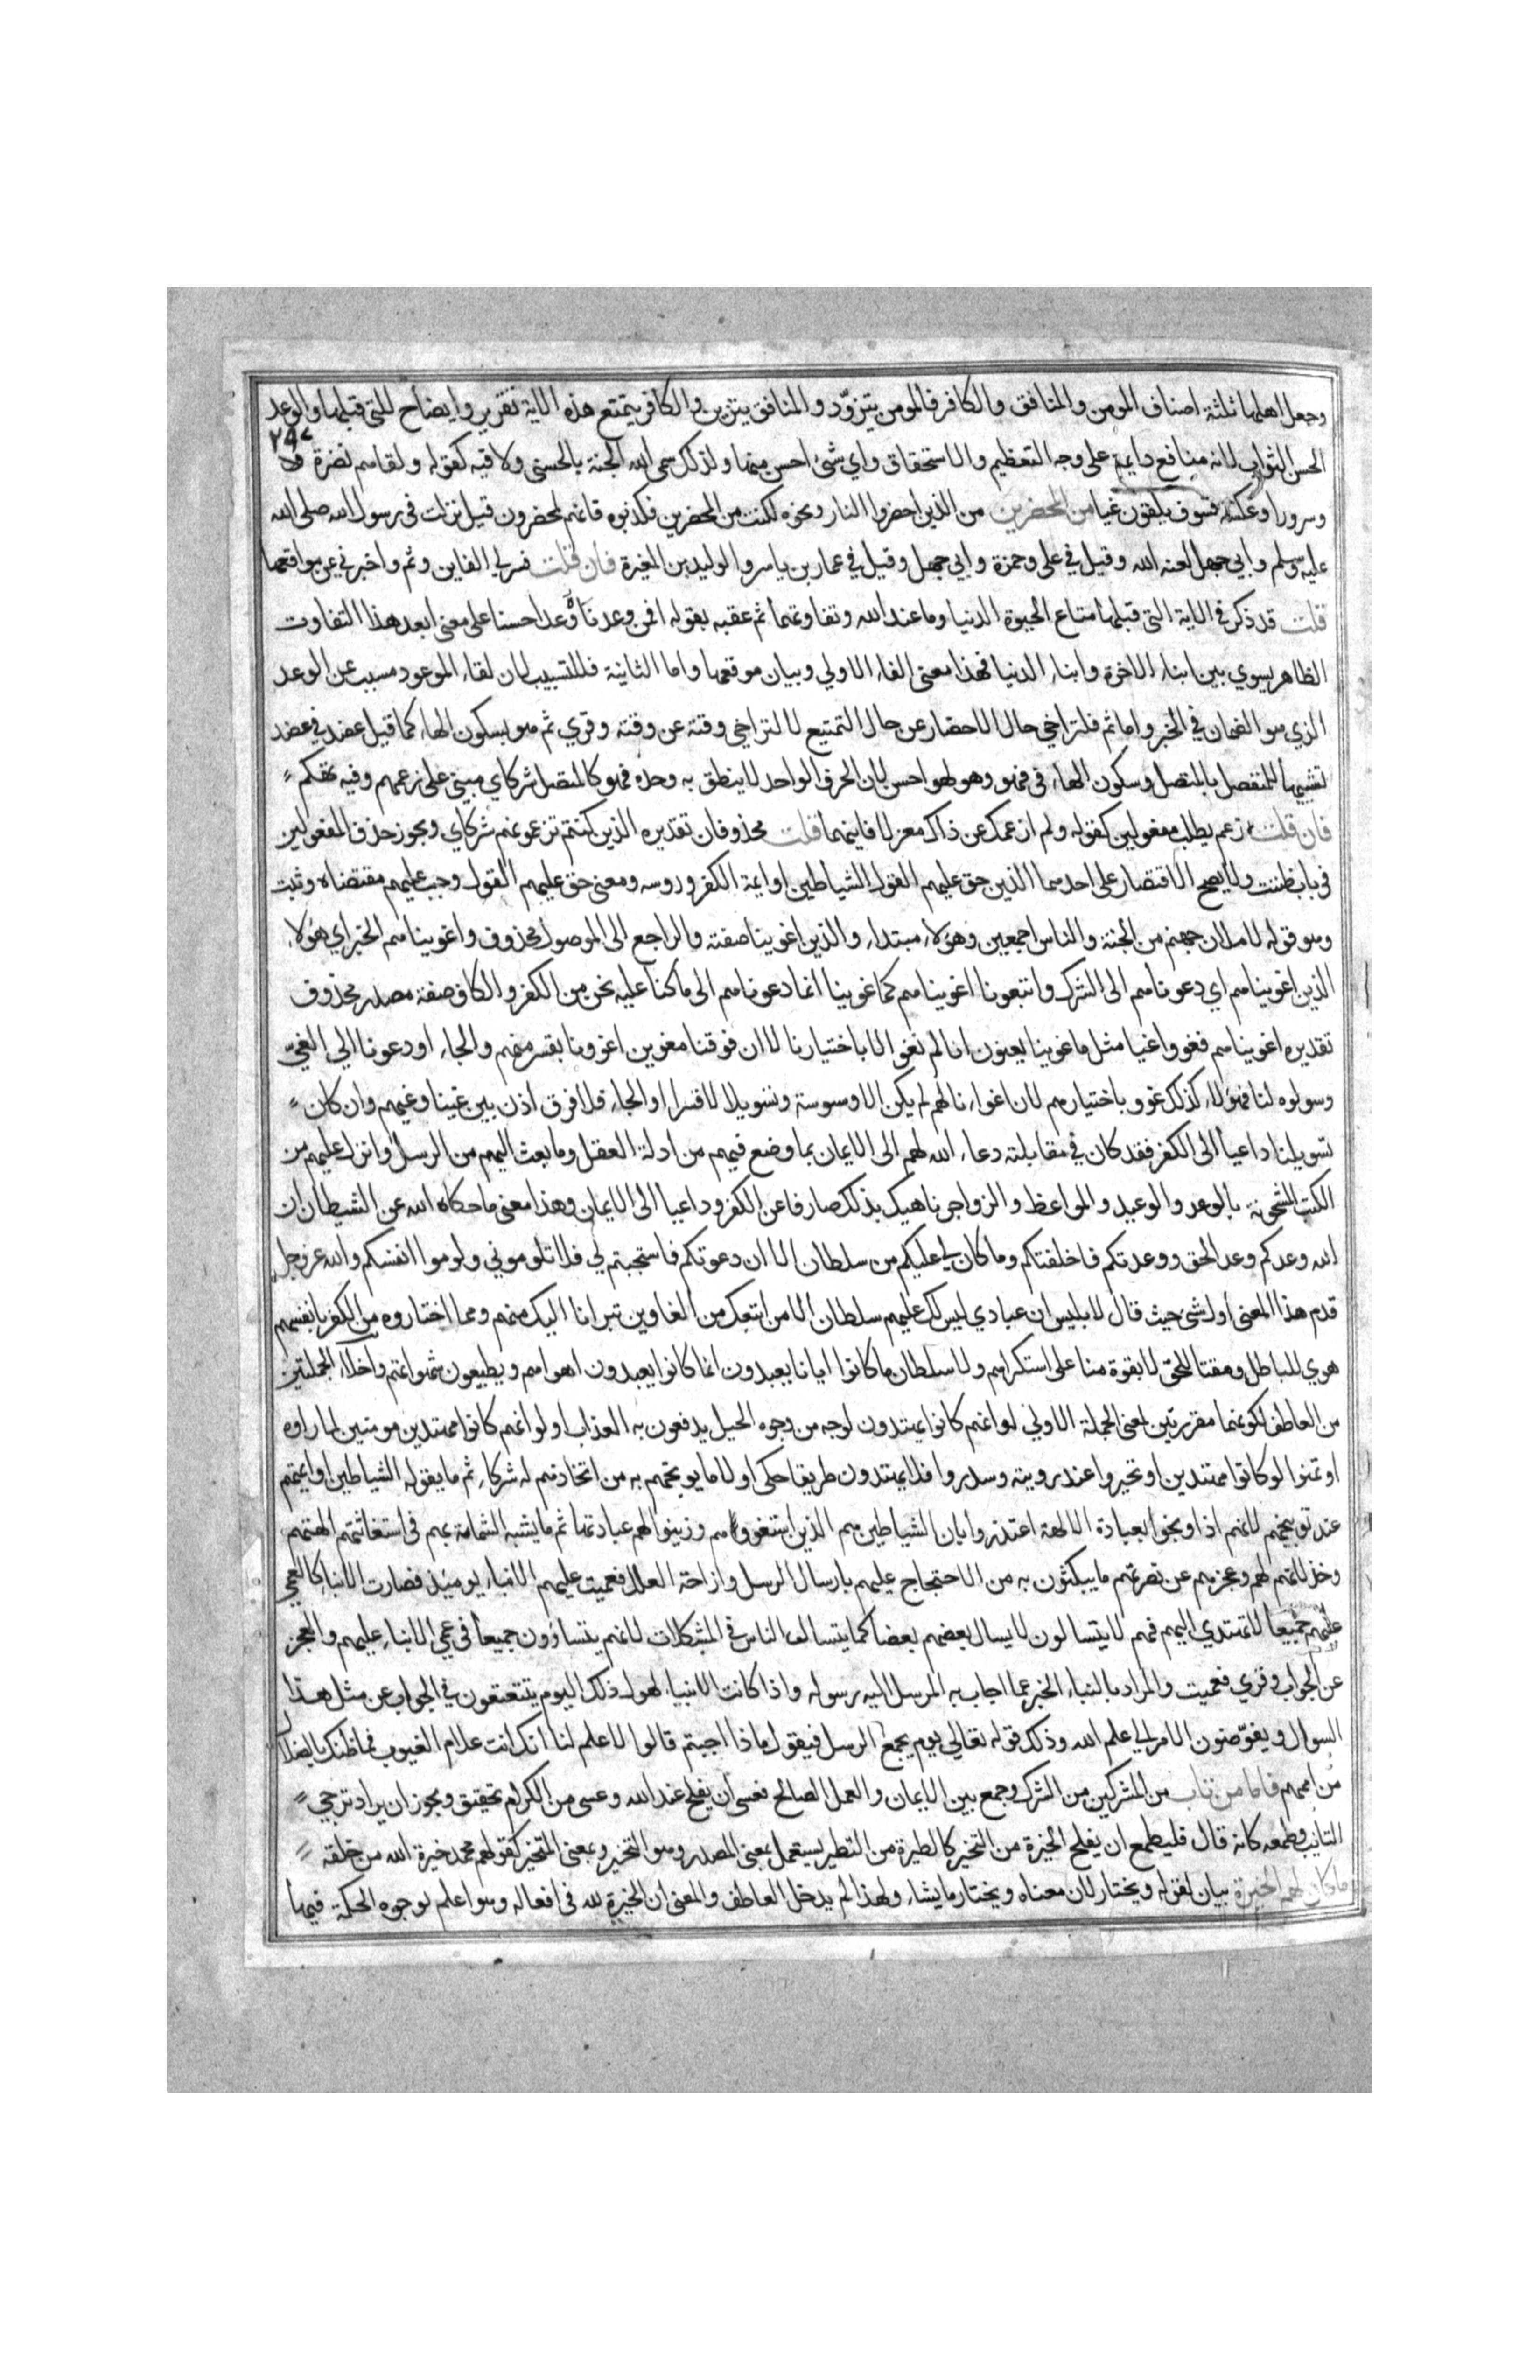 وجعل اهلها ثلثة اصناف المومن والمنافق والكافر فالمومن يتزوّد والمنافق يتزين والكافر يتمتع هذه الاية تقرير وايضاح للتى قبلها والوعد
الحسن الثواب لانه منافع دايمة على وجه التعظيم والاستحقاق واي شئ احسن منها ولذلك سمى الله الجنة بالحسنى ولاقيه كقوله ولقاهم نضرة
وسرورا وعكسه فسوف يلقون غيا من المحضرين من الذين احضروا النار ونحوه لكنت من المحضرين فكذبوه فانهم لمحضرون قيل نزلت فى رسول الله صلى الله
عليه وسلم وابي جهل لعنه الله وقيل في على وحمزة وابي جهل وقيل في عمار بن ياسر والوليد بن المغيرة فان قلت فسر لي الفاين وثم واخبرني عن مواقعها
قلت قد ذكر في الاية التى قبلها متاع الحيوة الدنيا وما عند الله وتفاوتهما ثم عقبه بقوله افمن وعدناه وعدا حسنا على معنى ابعد هذا التفاوت
الظاهر يسوي بين ابناء الاخرة وابناء الدنيا فهذا معنى الفاء الاولي وبيان موقعها واما الثانية فللتسبيب لان لقاء الموعود مسبب عن الوعد
الذي هو الضمان في الخير واما ثم فلتراخي حال الاحضار عن حال التمتيع لا لتراخي وقته عن وقته وقري ثم هو بسكون الهاء كما قيل عضد في عضد
تشبيها للمنفصل بالمتصل وسكون الهاء في فهو وهو لهو احسن لان الحرف الواحد لا ينطق به وحده فهو كالمتصل شركاي مبني على زعمهم وفيه تهكم
فان قلت زعم يطلب مفعولين كقوله ولم ازعمك عن ذاك معزلا فاينهما قلت محذوفان تقديره الذين كنتم تزعمونهم شركاي ويجوز حذف المفعولين
فى باب ظننت ولا يصح الاقتصار على احدهما الذين حق عليهم القول الشياطين او ايمة الكفر وروسه ومعنى حق عليهم القول وجب عليهم مقتضاه وثبت
وهو قوله لاملان جهنم من الجنة والناس اجمعين وهؤلاء مبتداء والذين اغوينا صفته والراجع الى الموصول محذوف واغويناهم الخبر اي هؤلاء
الذين اغويناهم اي دعوناهم الى الشرك واتبعونا اغويناهم كما غوينا انما دعوناهم الى ما كنا عليه نحن من الكفر والكاف صفة مصدر محذوف
تقديره اغويناهم فغووا غيا مثل ما غوينا يعنون انا لم نغو الا باختيارنا لا ان فوقنا مغوين اغوونا بقسر منهم والجاء او دعونا الي الغيّ
وسولوه لنا فهؤلاء كذلك غووا باختيارهم لان اغواءنا لهم لم يكن الا وسوسة وتسويلا لا قسرا او الجاء فلا فرق اذن بين غينا وغيهم وان كان
تسويلنا داعيا الى الكفر فقد كان في مقابلته دعاء الله لهم الى الايمان بما وضع فيهم من ادلة العقل وما بعث اليهم من الرسل وانزل عليهم من
الكتب المشحونة بالوعد والوعيد والمواعظ والزواجر ناهيك بذلك صارفا عن الكفر وداعيا الى الايمان وهذا معنى ما حكاه الله عن الشيطان ان
الله وعدكم وعد الحق ووعدتكم فاخلفتكم وما كان لي عليكم من سلطان الا ان دعوتكم فاستجبتم لي فلا تلوموني ولوموا انفسكم والله عز وجل
قدم هذا المعنى اول شئ حيث قال لابليس ان عبادي ليس لك عليهم سلطان الا من اتبعك من الغاوين تبرانا اليك منهم ومما اختاروه من الكفر بانفسهم
هوي للباطل ومقتا للحق لا بقوة منا على استكراههم ولا سلطان ما كانوا ايانا يعبدون انما كانوا يعبدون اهواهم ويطيعون شهواتهم واخلاء الجملتين
من العاطف لكونهما مقررتين لمعنى الجملة الاولي لو انهم كانوا يهتدون لوجه من وجوه الحيل يدفعون به العذاب او لو انهم كانوا مهتدين مومنين لما راوه
او تمنوا لو كانوا مهتدين او تحيروا عند رويته وسدروا فلا يهتدون طريقا حكى اولا ما يوبخهم به من اتخاذهم له شركاء ثم ما يقوله الشياطين او ايمتهم
عند توبيخهم لانهم اذا وبخوا بعبادة الالهة اعتذروا بان الشياطين هم الذين استغووهم وزينوا لهم عبادتها ثم ما يشبه الشماتة بهم فى استغاثتهم الهتهم
وخذلانهم لهم وعجزهم عن نصرتهم ما يبكتون به من الاحتجاج عليهم بارسال الرسل وازاحة العلل فعميت عليهم الانباء يوميذ فصارت الانباء كالعمي
عليهم جميعا لا تهتدي اليهم فهم لا يتسالون لا يسال بعضهم بعضا كما يتسال الناس في المشكلات لانهم يتساوون جميعا في عمي الانباء عليهم والعجز
عن الجواب وقري فعميت والمراد بالنباء الخبر عما اجاب به المرسل اليه رسوله واذا كانت الانبياء لهول ذلك اليوم يتتعتعون في الجواب عن مثل هذا
السوال ويفوّضون الامر الي علم الله وذلك قوله تعالي يوم يجمع الرسل فيقول ماذا اجبتم قالوا لا علم لنا انك انت علام الغيوب فما ظنك بالضلال
من اممهم فاما من تاب من المشركين من الشرك وجمع بين الايمان والعمل الصالح فعسى ان يفلح عند الله وعسى من الكرام تحقيق ويجوز ان يراد ترجي
التايب وطمعه كانه قال فليطمع ان يفلح الخيرة من التخير كالطيرة من التطير يستعمل بمعنى المصدر وهو التخير وبمعنى المتخير كقولهم محمد خيرة الله من خلقه
ما كان لهم الخيرة بيان لقوله ويختار لان معناه ويختار ما يشاء ولهذا لم يدخل العاطف والمعنى ان الخيرة لله فى افعاله وهو اعلم لوجوه الحكمة فيها